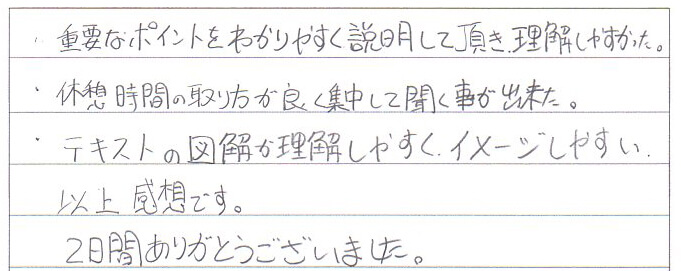 ・重要なポイントをわかりやすく説明して頂き、理解しやすかった。
・休憩時間の取り方が良く集中して聞く事が出来た。
・テキストの図解が理解しやすく、イメージしやすい。
以上 感想です。
2日間ありがとうございました。